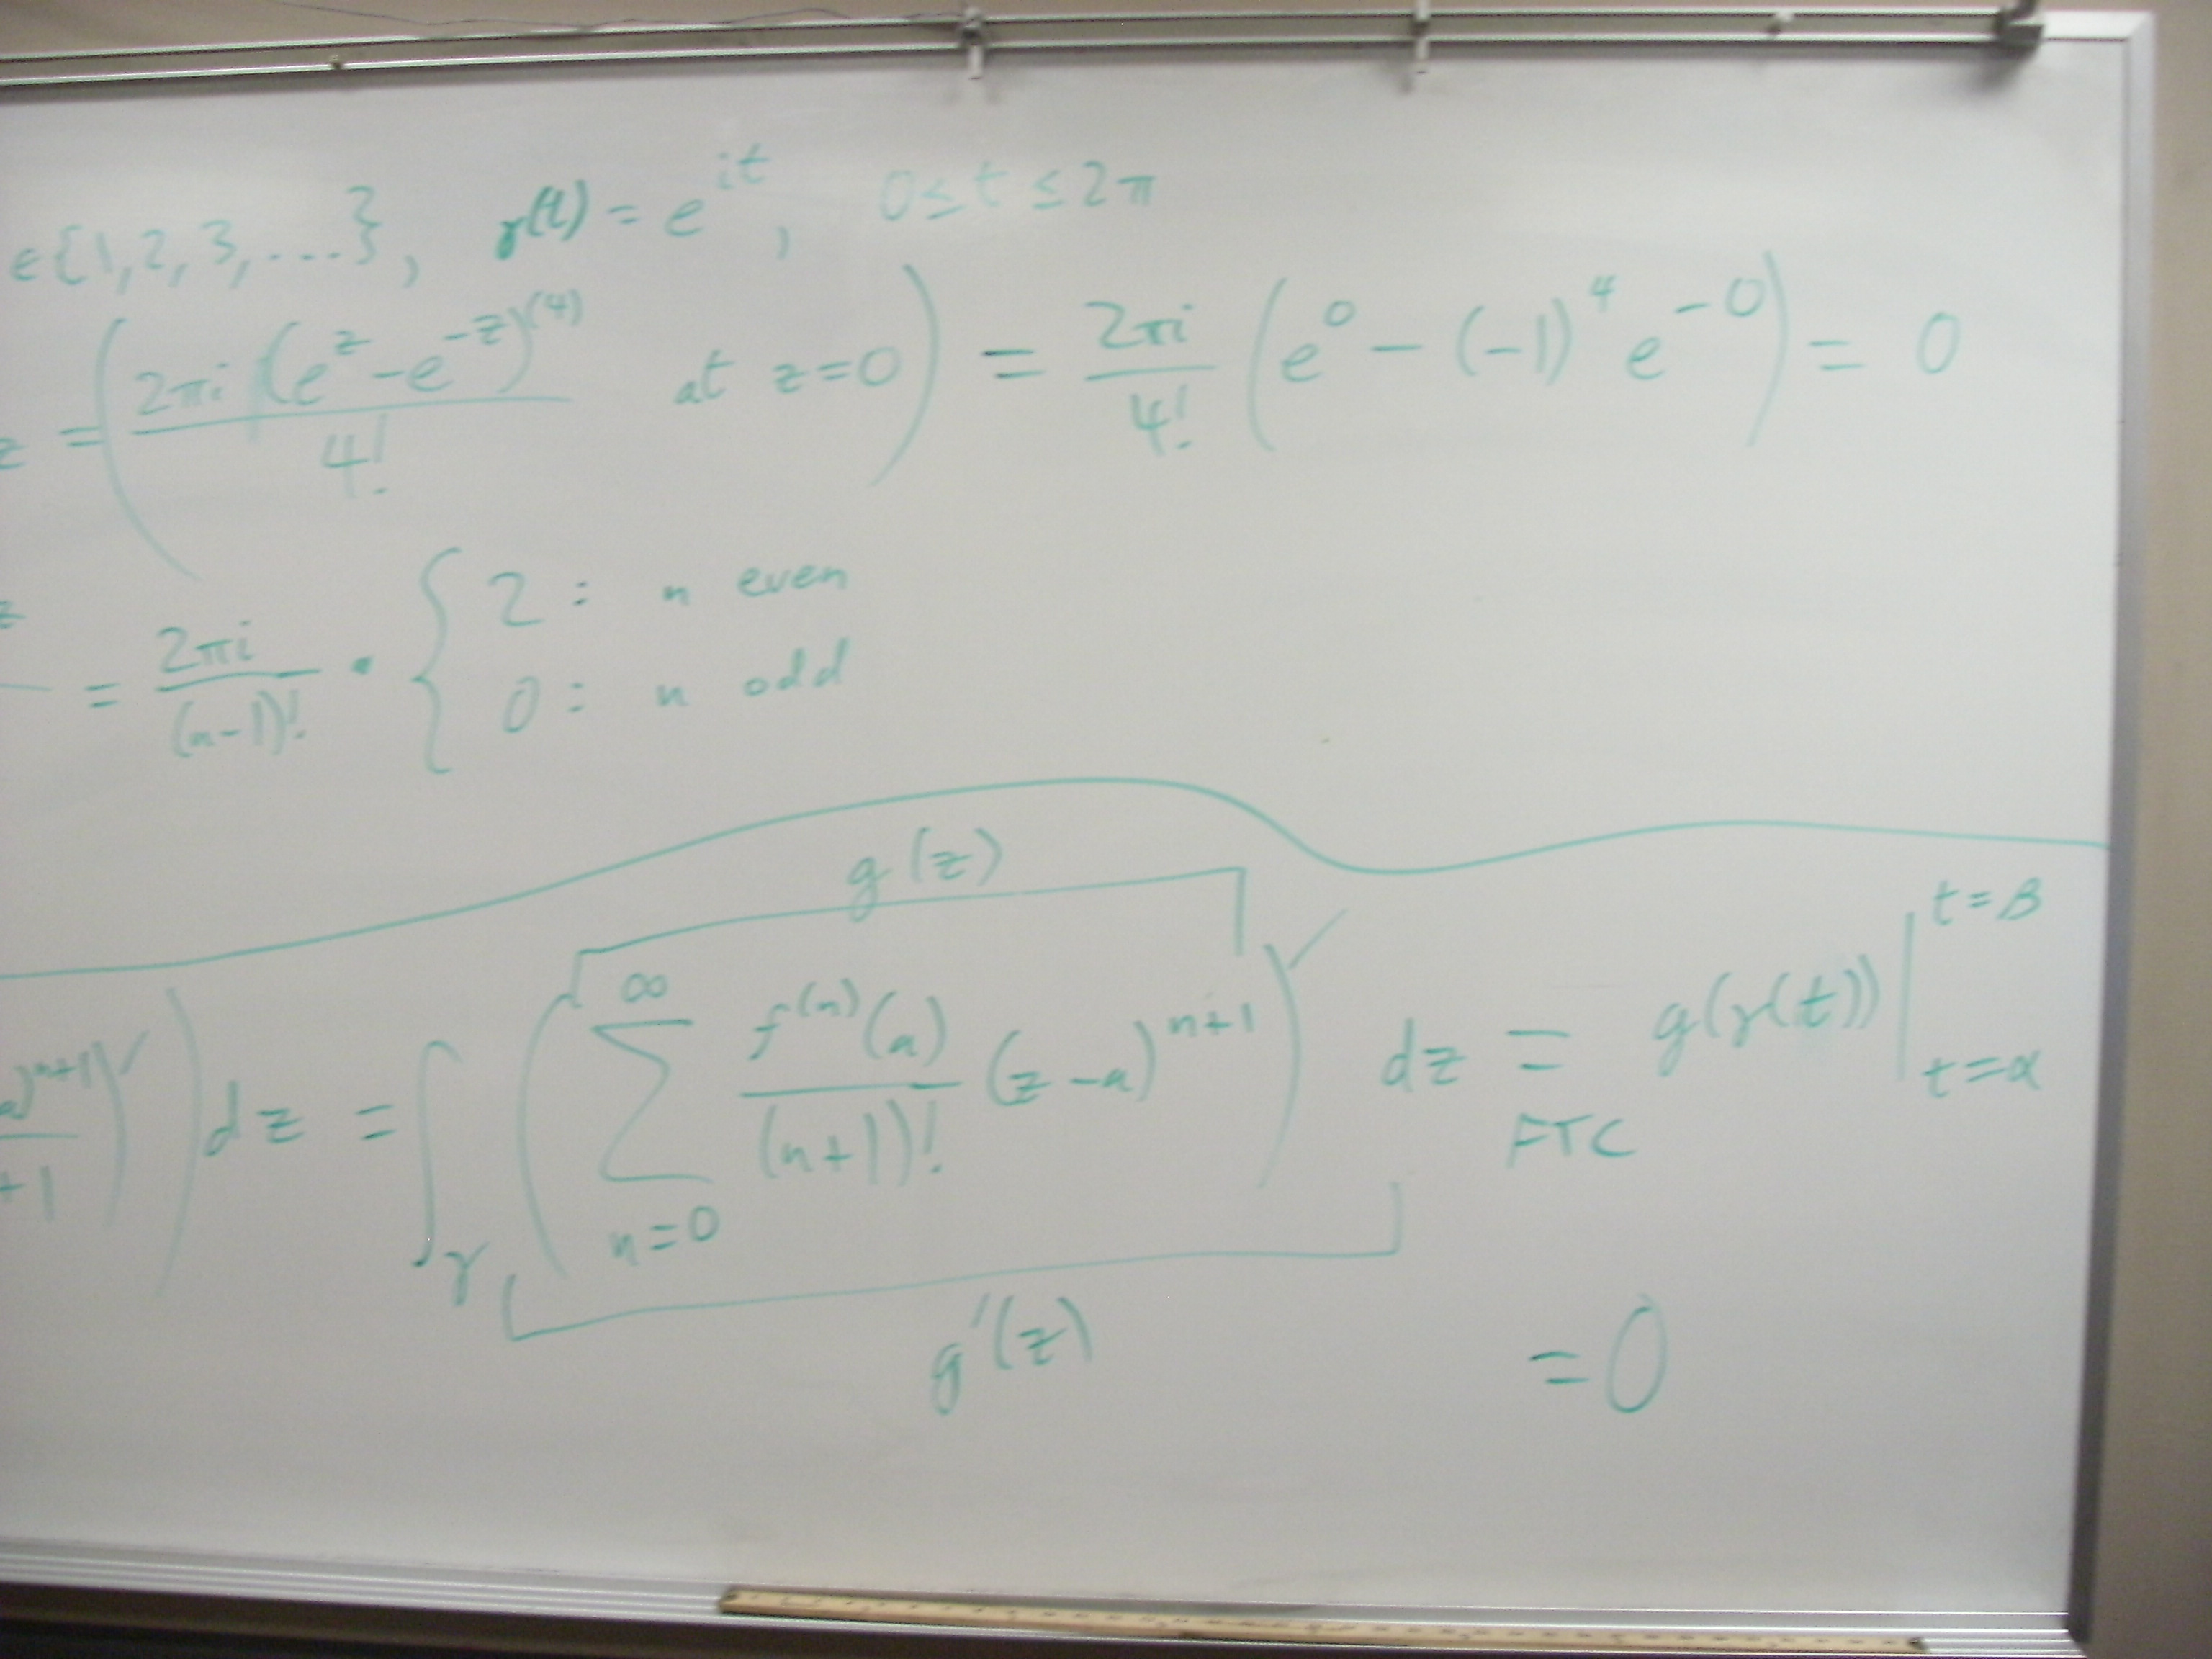 ∈{1,2,3,....}, γ(t) = e^{it}, 0 ≤ t ≤ 2π
z = ( 2πi (e^z - e^{-z})^{(4)} / 4! at z=0 ) = 2πi / 4! ( e^0 - (-1)^4 e^{-0} ) = 0
z
= 2πi / (n-1)! · { 2 : n even
0 : n odd
g(z)
)^{n+1} / +1 )' ) dz = ∫_γ ( ∑_{n=0}^{∞} f^{(n)}(a) / (n+1)! (z-a)^{n+1} )' dz = g(γ(t)) |_{t=α}^{t=β}
FTC
g'(z)
= 0